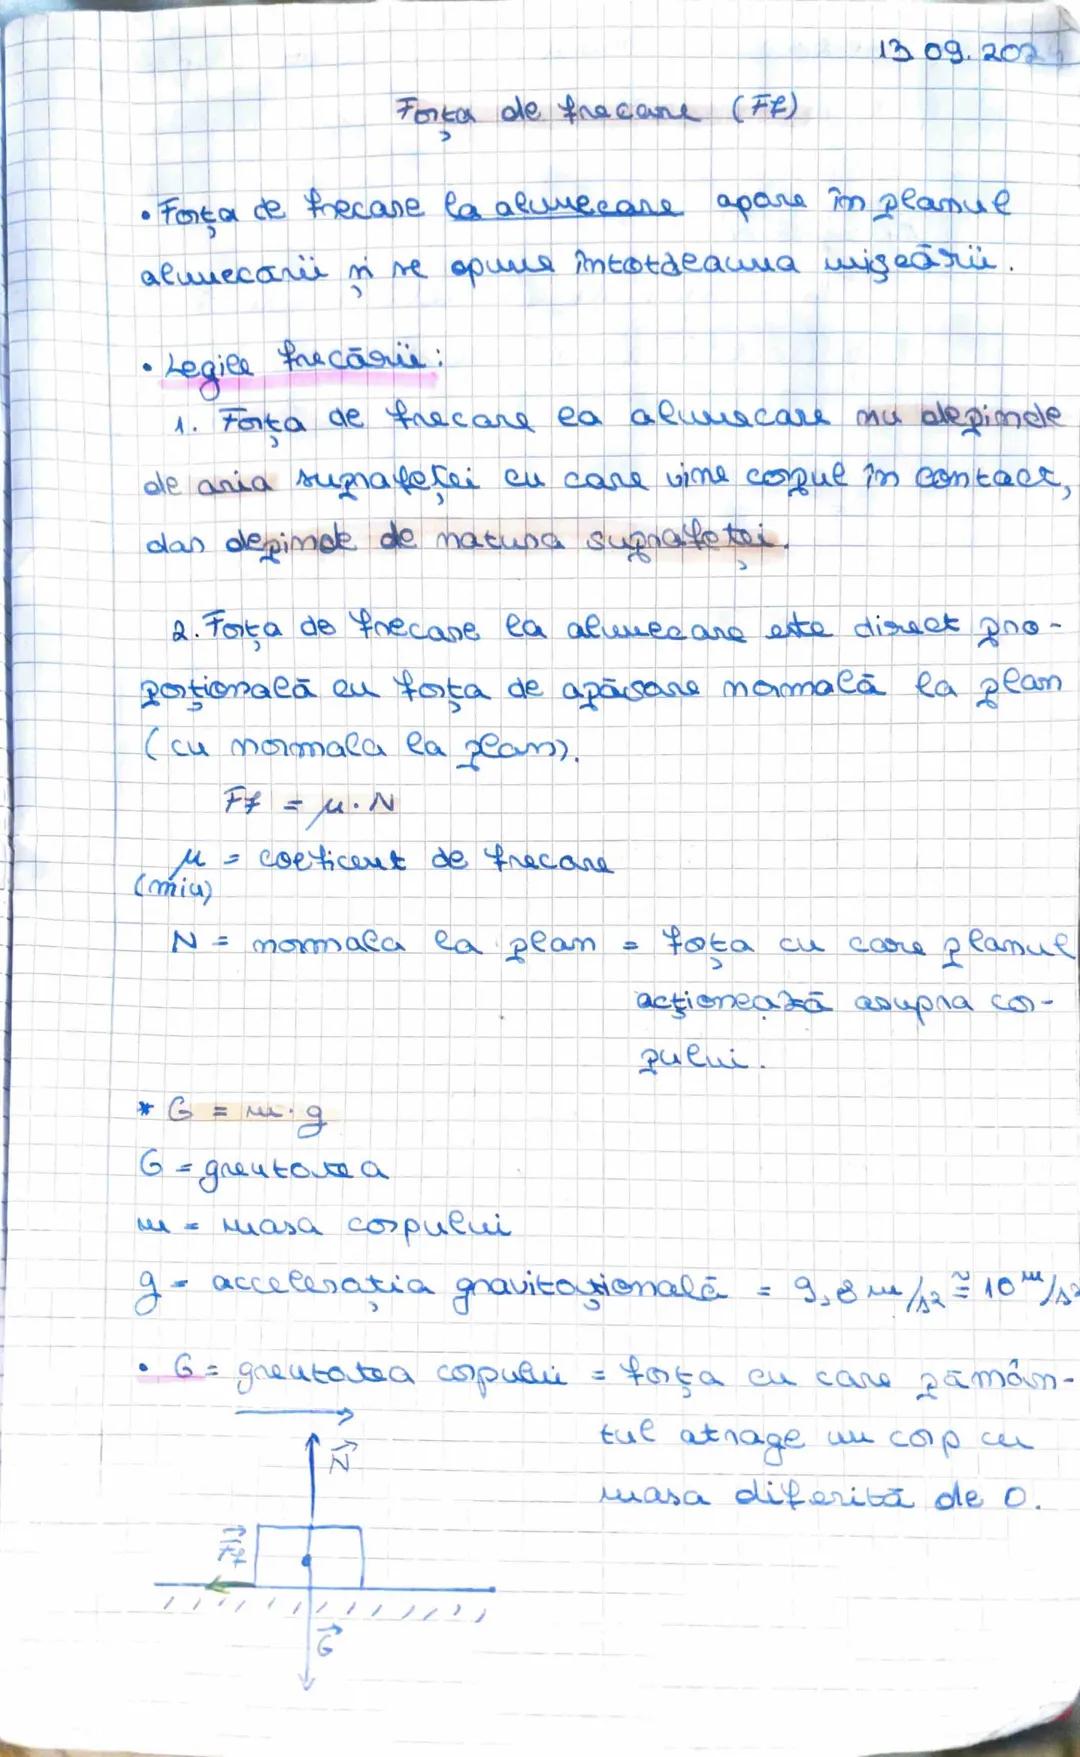 13 09. 202
Forța de frecare (Ff)
• Forța de frecare la alunecare apare în planul
alunecării și se opune întotdeauna mișcării.
• Legile frecării:
1. Forța de frecare la alunecare nu depinde
de aria suprafeței cu care vine corpul în contact,
dar depinde de natura suprafeței.
2. Forța de frecare la alunecare este direct pro-
porțională cu forța de apăsare normală la plan
(cu normala la plan).
Ff = μ · N
μ = coeficent de frecare
(miu)
N = normala la plan = foța cu care planul
acționează asupra cor-
pului.
* G = m · g
G = greutatea
m = masa corpului
g = accelerația gravitațională = 9,8 m/s2 ≅ 10 m/s2
• G = greutatea corpului = forța cu care pămân-
tul atrage un corp cu
masa diferită de 0.
N
Ff
G